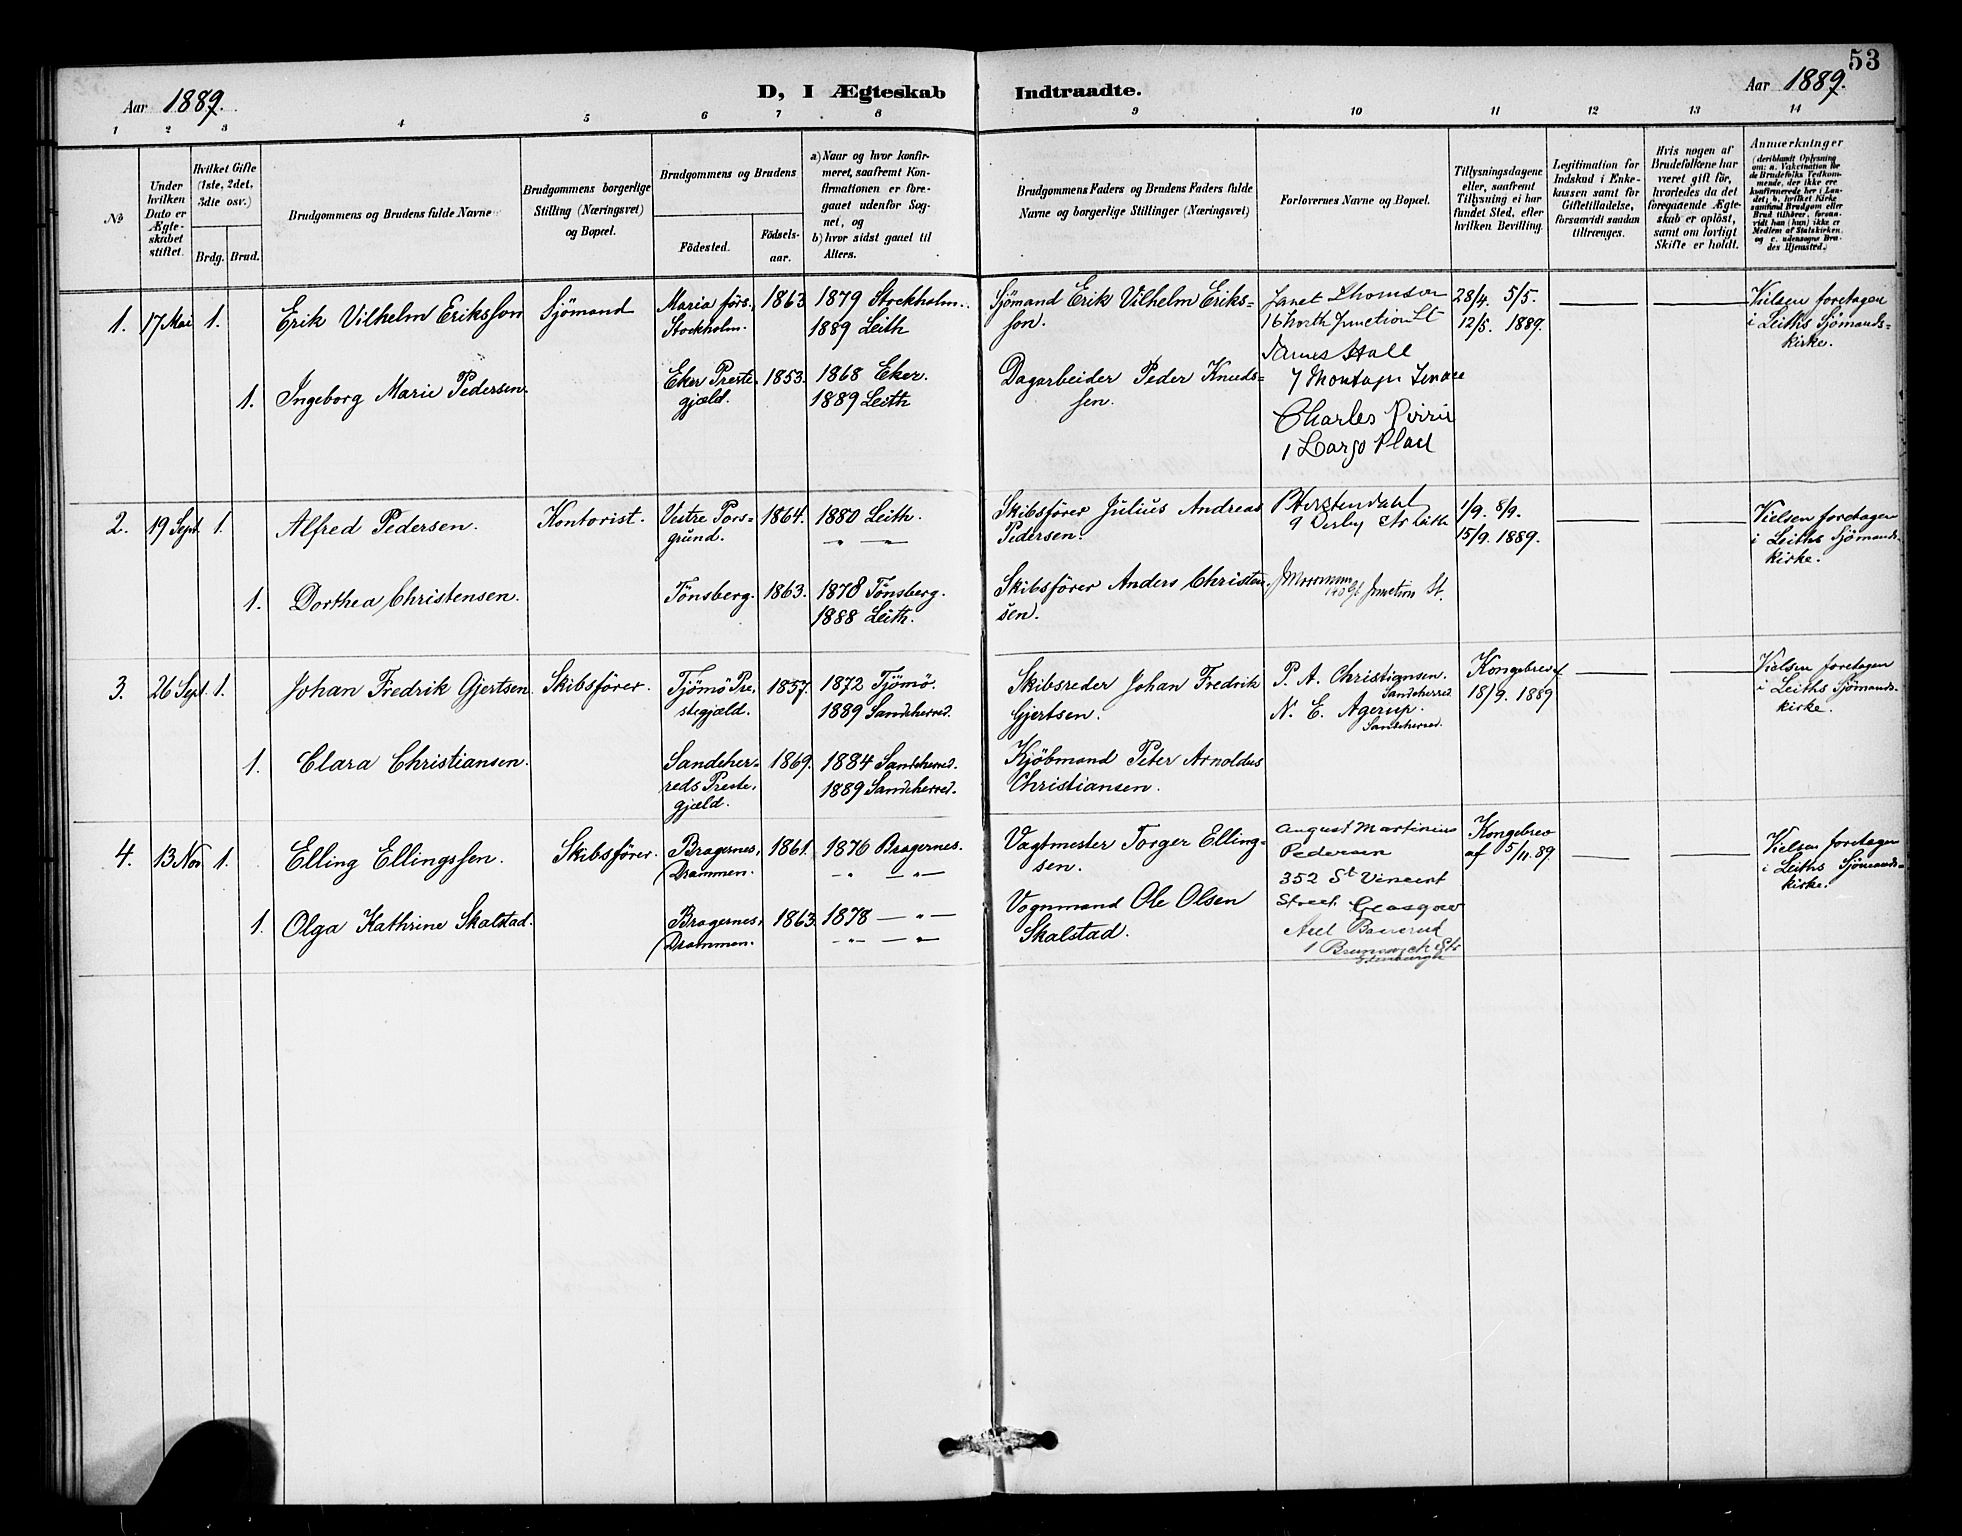 53
Aar 1889.
D, I Ægteskab Indtraadte.
Aar 1889.
1 2 3 4 5 6 7 8 9 10 11 12 13 14
No
Under
hvilken
Dato er
Ægte-
skabet
stiftet.
Hvilket Gifte
(1ste, 2det,
3die osv.)
Brdg. Brud.
Brudgommens og Brudens fulde Navne
Brudgommens borgerlige
Stilling (Næringsvei)
og Bopæl.
Brudgommens og Brudens
Fødested.
Fødsels-
aar.
a) Naar og hvor konfir-
meret, saafremt Kon-
firmationen er fore-
gaaet udenfor Sog-
net, og
b) hvor sidst gaaet til
Alters.
Brudgommens Faders og Brudens Faders fulde
Navne og borgerlige Stillinger (Næringsvei)
Forlovernes Navne og Bopæl.
Tillysningsdagene
eller, saafremt
Tillysning ei har
fundet Sted, efter
hvilken Bevilling.
Legitimation for
Indskud i Enke-
kassen samt for
Giftetilladelse,
forsaavidt saadan
tiltrænges.
Hvis nogen af
Brudefolkene har
været gift før,
hvorledes da det
foregaaende Ægte-
skab er opløst,
samt om lovligt
Skifte er holdt.
Anmærkninger
(deriblandt Oplysning
om: a. Vakcination for
de Brudefolks Vedkom-
mende, der ikke ere
konfirmerede her i Lan-
det; b. hvilket Kirke-
samfund Brudgom eller
Brud tilhører, forsaa-
vidt han (hun) ikke er
Medlem af Statskirken,
og c. udensogns Bru-
des Hjemsted.)
1. 17 Mai 1.
Erik Vilhelm Eriksson
Sjömand
Maria förs.,
Stockholm.
1863
1879 Stockholm.
1889 Leith
Sjömand Erik Vilhelm Eriks-
son.
Janet Thomson
16 North Junction St
James Hall
7 Montagu Terrace
Charles Pirrie
1 Largo Place
28/4. 5/5.
12/5. 1889.
Vielsen foretagen
i Leiths Sjömands-
kirke.
1. Ingeborg Marie Pedersen.
Eker Preste-
gjæld.
1853.
1868 Eker.
1889 Leith
Dagarbeider Peder Knuds-
sen.
2. 19 Sept. 1.
Alfred Pedersen.
Kontorist.
Vestre Pors-
grund.
1864.
1880 Leith.
" "
Skibsförer Julius Andreas
Pedersen.
9 Derby St Leith
1/9. 8/9.
15/9. 1889.
Vielsen foretagen
i Leiths Sjömands-
kirke.
1. Dorthea Christensen.
Tönsberg.
1863.
1878 Tönsberg.
1888 Leith.
Skibsförer Anders Christen-
sen.
Junction St.
3. 26 Sept. 1.
Johan Fredrik Gjertsen
Skibsförer.
Tjömö Pre-
stegjæld.
1857.
1872 Tjömö.
1889 Sandeherred.
Skibsreder Johan Fredrik
Gjertsen.
P. A. Christiansen.
Sandeherred
N. E. Agerup.
Sandeherred.
Kongebrev af
18/9. 1889
Vielsen foretagen
i Leiths Sjömands-
kirke.
1. Clara Christiansen.
Sandeher-
reds Preste-
gjæld.
1869.
1884 Sandeherred.
1889 Sandeherred.
Kjöbmand Peter Arnoldus
Christiansen.
4. 13 Nov. 1.
Elling Ellingssen.
Skibsförer.
Bragernes,
Drammen.
1861.
1876 Bragernes.
" "
Vagtmester Torger Elling-
sen.
August Martinius
Pedersen
352 St Vincent
Street Glasgow
Axel
1 Brunswick Str
Edinburgh
Kongebrev
af 5/11. 89.
Vielsen foretagen
i Leiths Sjömands-
kirke.
1. Olga Kathrine Skalstad.
Bragernes,
Drammen.
1863.
1878 "
" "
Vognmand Ole Olsen
Skalstad.